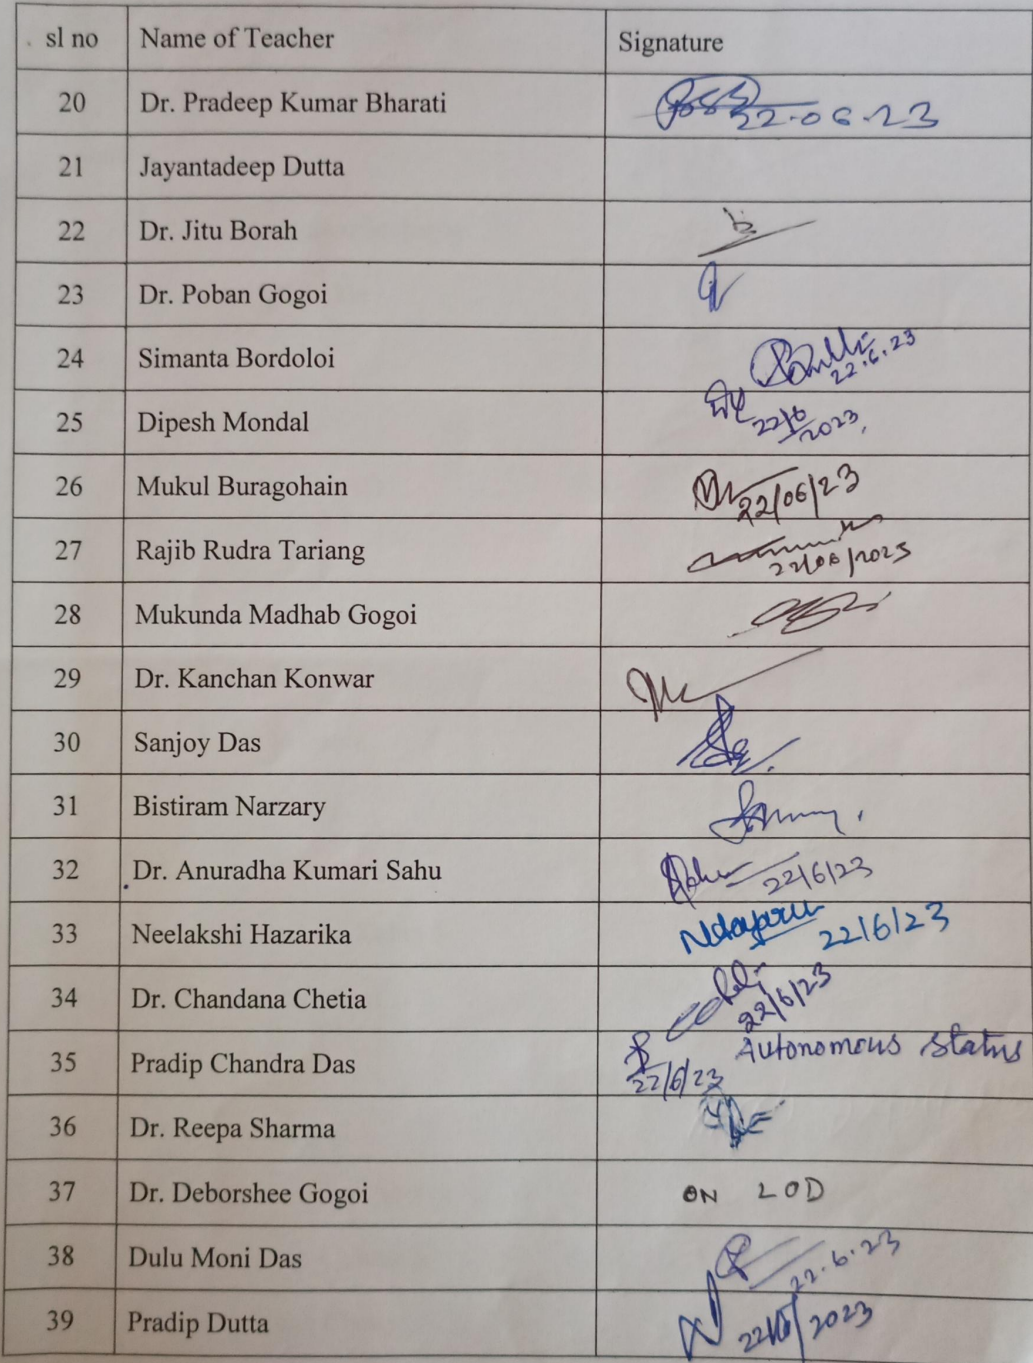 sl no Name of Teacher Signature
20 Dr. Pradeep Kumar Bharati 22.06.23
21 Jayantadeep Dutta
22 Dr. Jitu Borah
23 Dr. Poban Gogoi
24 Simanta Bordoloi 22.6.23
25 Dipesh Mondal 22/6/2023
26 Mukul Buragohain 22/06/23
27 Rajib Rudra Tariang 22/06/2023
28 Mukunda Madhab Gogoi
29 Dr. Kanchan Konwar
30 Sanjoy Das
31 Bistiram Narzary
32 Dr. Anuradha Kumari Sahu 22/6/23
33 Neelakshi Hazarika 22/6/23
34 Dr. Chandana Chetia 22/6/23
35 Pradip Chandra Das 22/6/23 Autonomous Status
36 Dr. Reepa Sharma
37 Dr. Deborshee Gogoi ON LOD
38 Dulu Moni Das 22.6.23
39 Pradip Dutta 22/6/2023